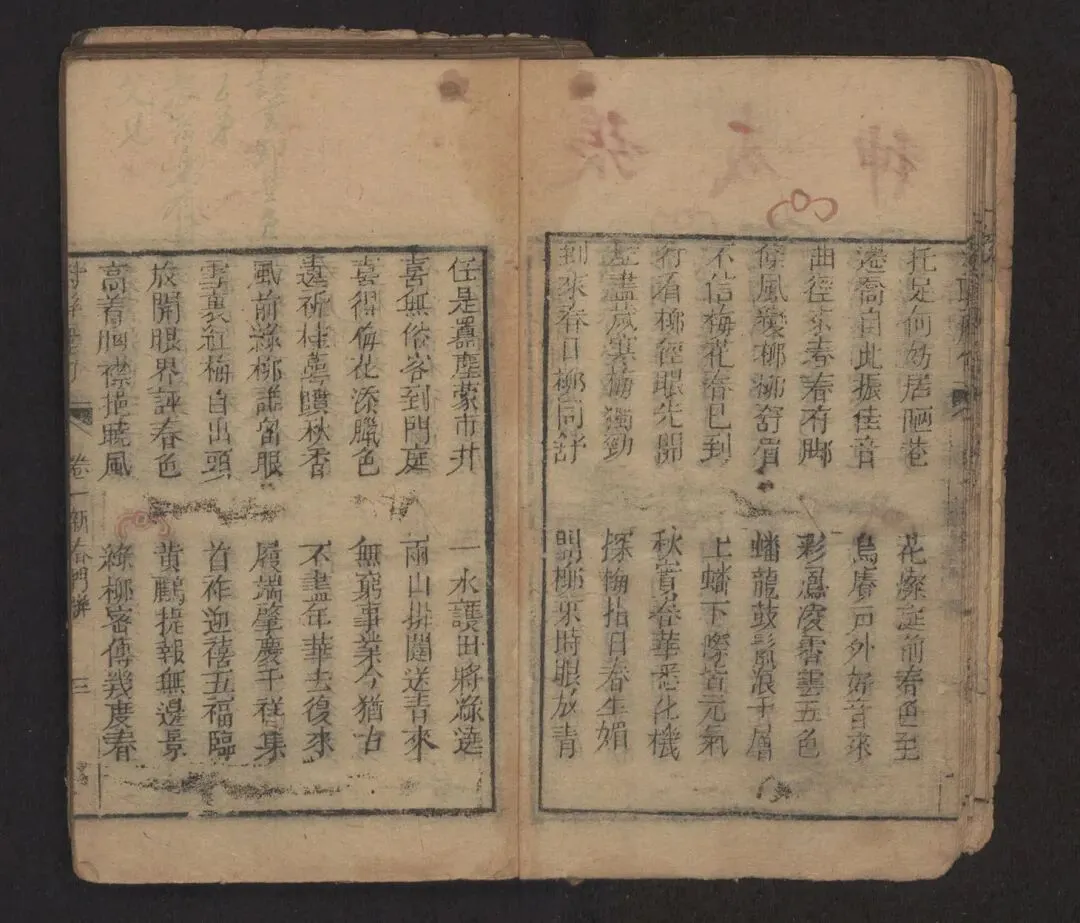 托足何妨居陋巷
遷喬自此振佳音
曲徑來春春有脚
條風襲柳柳舒眉
不信梅花春已到
行看柳徑眼先開
歷盡歲寒梅獨勁
到來春日柳同舒
花燦庭前春色至
鳥賡戶外好音來
彩鳳凌霄雲五色
蟠龍鼓鬣浪千層
上蟠下際皆元氣
秋實春華悉化機
探梅指日春生媚
問柳來時眼放青
任是囂塵蒙市井
喜無俗客到門庭
喜得梅花添臘色
遙祈桂萼噴秋香
風前綠柳誰留眼
雪裏紅梅自出頭
放開眼界評春色
高着胸襟挹曉風
一水護田將綠遶
兩山排闥送青來
無窮事業今猶古
不盡年華去復來
履端肇慶千祥集
首祚迎禧五福臨
黃鸝提報無邊景
綠柳密傳幾度春
卷一 新春門聯 三